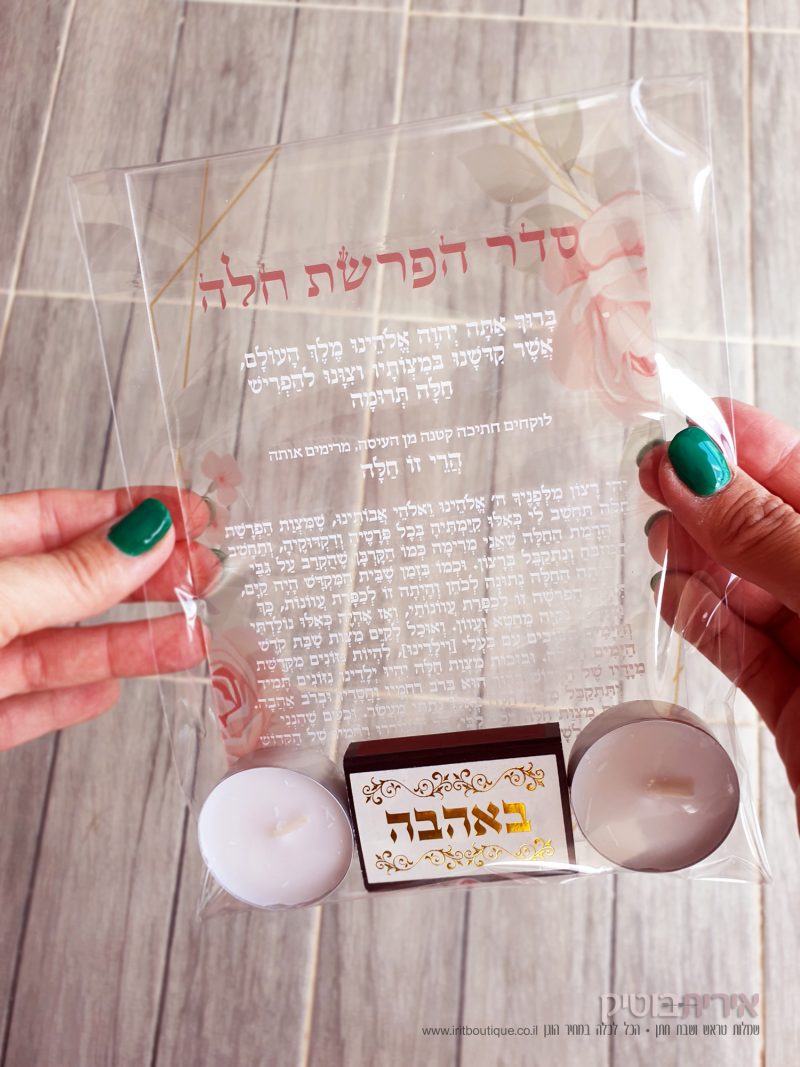 סדר הפרשת חלה
בָּרוּךְ אַתָּה יְהוָה אֱלֹהֵינוּ מֶלֶךְ הָעוֹלָם,
אֲשֶׁר קִדְּשָׁנוּ בְּמִצְוֹתָיו וְצִוָּנוּ לְהַפְרִישׁ
חַלָּה תְּרוּמָה
לוקחים חתיכה קטנה מן העיסה, מרימים אותה
הֲרֵי זוֹ חַלָּה
יְהִי רָצוֹן מִלְּפָנֶיךָ ה' אֱלֹהֵינוּ וֵאלֹהֵי אֲבוֹתֵינוּ, שֶׁמִּצְוַת הַפְרָשַׁת
חַלָּה תֵּחָשֵׁב לִי כְּאִלּוּ קִיַּמְתִּיהָ בְּכָל פְּרָטֶיהָ וְדִקְדּוּקֶיהָ, וְתֵחָשֵׁב
הֲרָמַת הַחַלָּה שֶׁאֲנִי מְרִימָה כְּמוֹ הַקָּרְבָּן שֶׁהֻקְרַב עַל גַּבֵּי
וְנִתְקַבֵּל בְּרָצוֹן. וּכְמוֹ בִּזְמַן שֶׁבֵּית הַמִּקְדָּשׁ הָיָה קַיָּם,
הַחַלָּה נְתוּנָה לַכֹּהֵן וְהָיְתָה זוֹ לְכַפָּרַת עֲווֹנוֹת, כָּךְ
זוֹ לְכַפָּרַת עֲווֹנוֹתַי, וְאָז אֶהְיֶה כְּאִלּוּ נוֹלַדְתִּי
מֵחֵטְא וְעָווֹן. וְאוּכַל לְקַיֵּם מִצְוַת שַׁבַּת קֹדֶשׁ
עִם בַּעְלִי [וִילָדֵינוּ], לִהְיוֹת נִזּוֹנִים מִקְּדֻשַּׁת
הַיָּמִים מִצְוַת חַלָּה יִהְיוּ יְלָדֵינוּ נִזּוֹנִים תָּמִיד
מִיָּדָיו שֶׁל הוּא בְּרֹב רַחֲמָיו וַחֲסָדָיו וּבְרֹב אַהֲבָה.
באהבה
איריתבוטיק
שמלות טראש ושבת חתן • הכל לכלה במחיר הוגן www.iritboutique.co.il